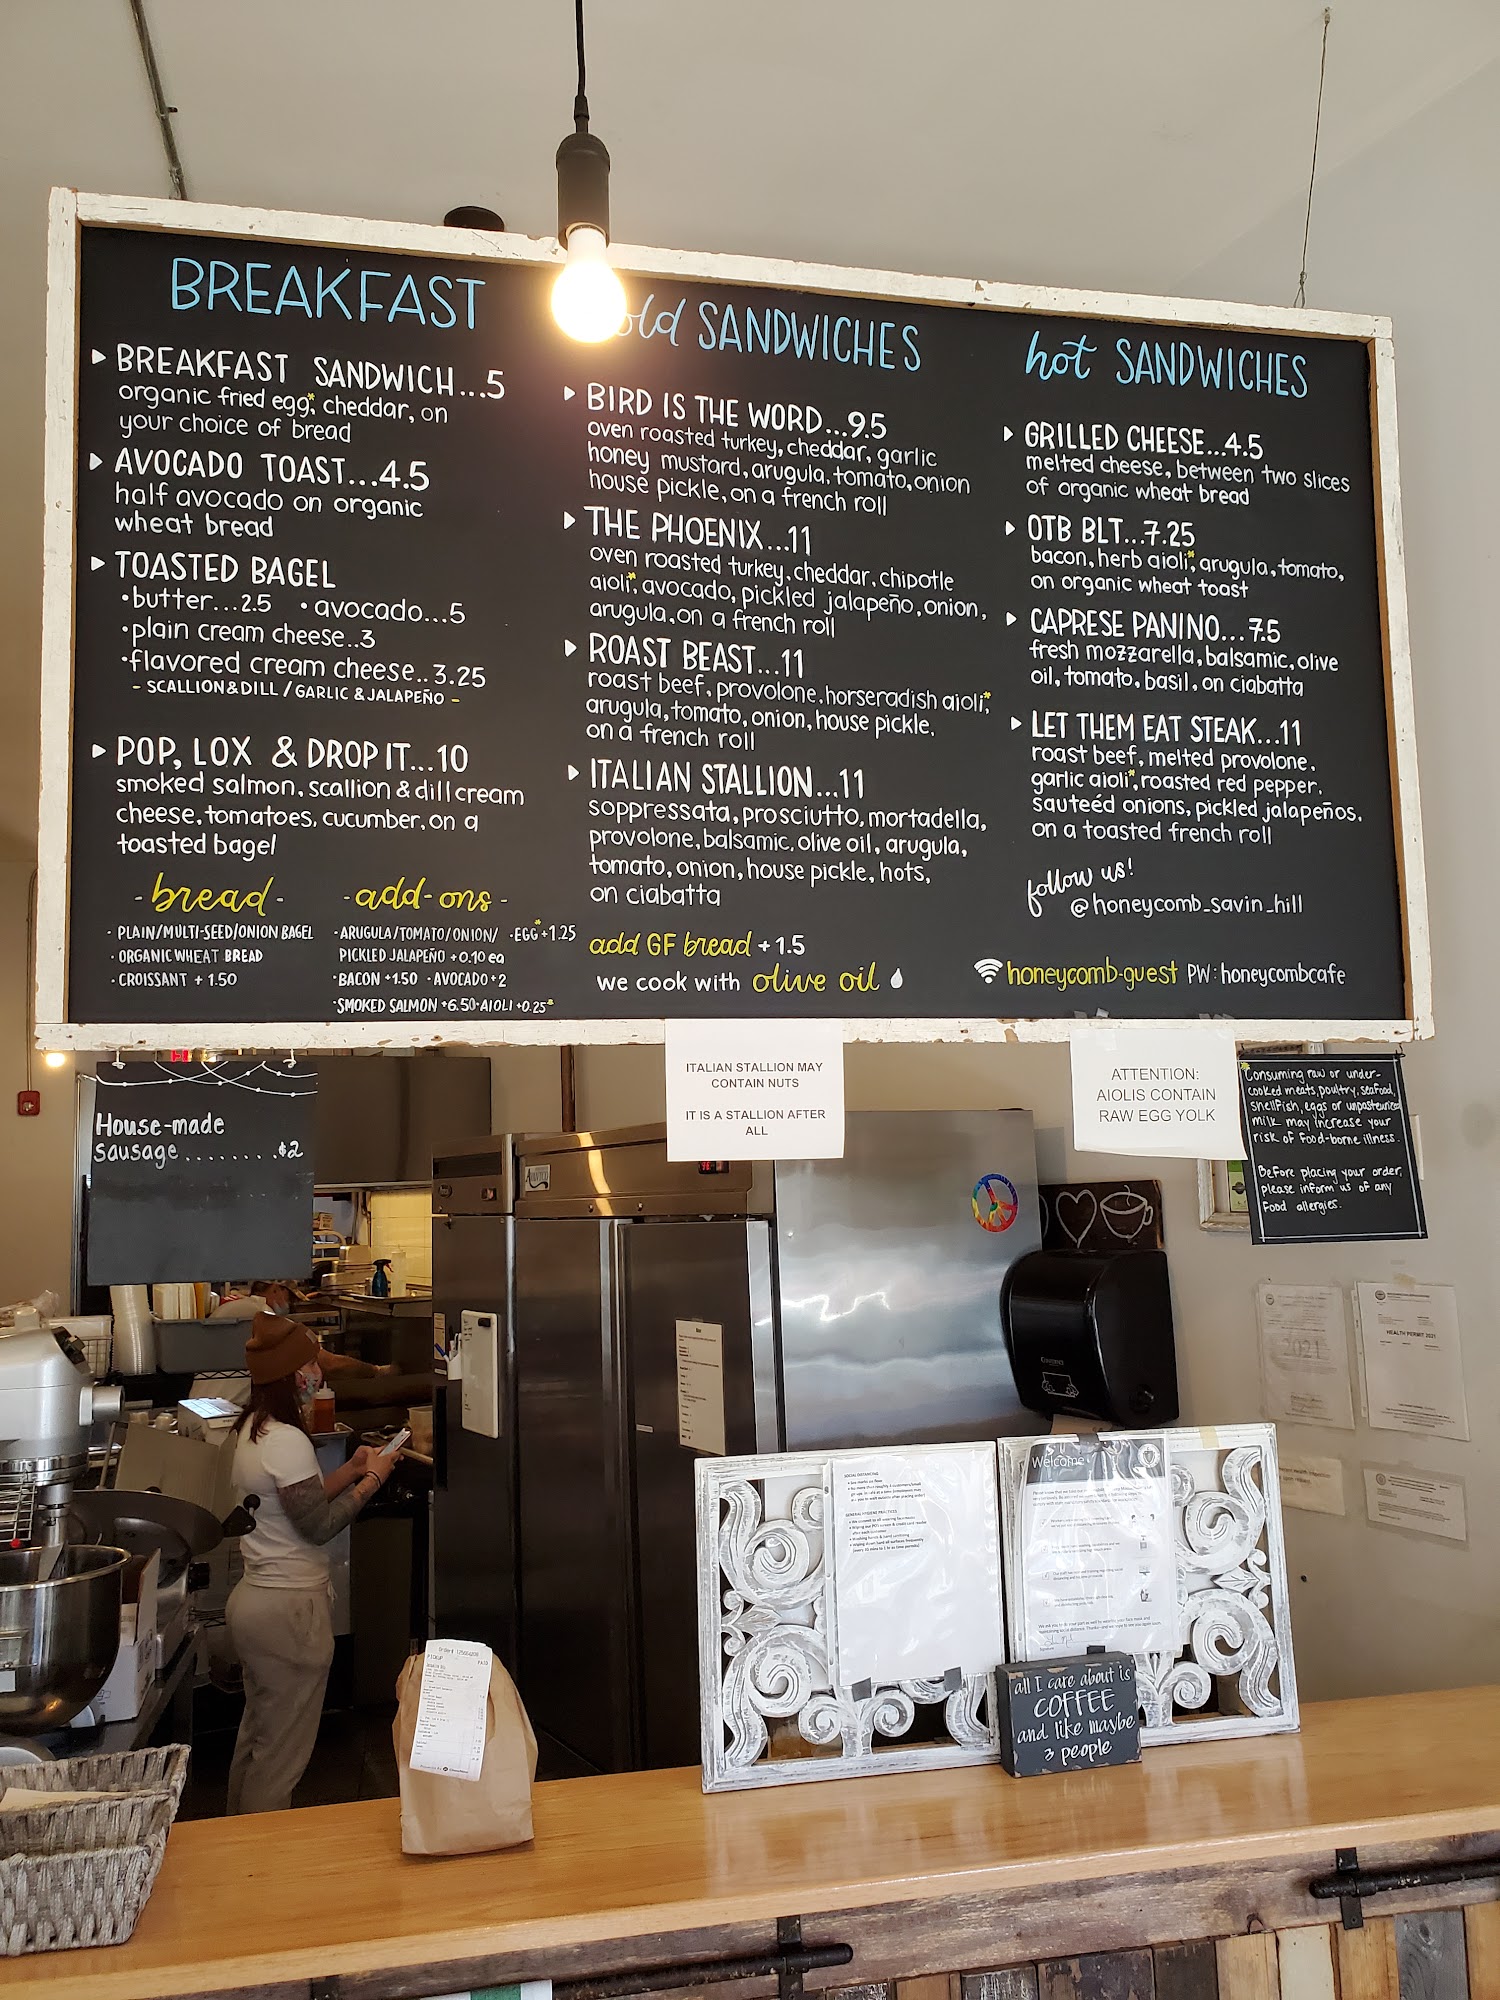 BREAKFAST
BREAKFAST SANDWICH...5
organic fried egg*, cheddar, on
your choice of bread
AVOCADO TOAST...4.5
half avocado on organic
wheat bread
TOASTED BAGEL
•butter...2.5 •avocado...5
•plain cream cheese..3
•flavored cream cheese..3.25
- SCALLION&DILL / GARLIC & JALAPEÑO -
POP, LOX & DROP IT...10
smoked salmon, scallion & dill cream
cheese, tomatoes, cucumber, on a
toasted bagel
-bread-
· PLAIN/MULTI-SEED/ONION BAGEL
· ORGANIC WHEAT BREAD
· CROISSANT +1.50
-add-ons-
·ARUGULA/TOMATO/ONION/ ·EGG*+1.25
PICKLED JALAPEÑO +0.10 ea
·BACON +1.50 ·AVOCADO+2
·SMOKED SALMON +6.50·AIOLI +0.25*
old SANDWICHES
BIRD IS THE WORD...9.5
oven roasted turkey, cheddar, garlic
honey mustard, arugula, tomato, onion
house pickle, on a french roll
THE PHOENIX...11
oven roasted turkey, cheddar, chipotle
aioli*, avocado, pickled jalapeño, onion,
arugula, on a french roll
ROAST BEAST...11
roast beef, provolone, horseradish aioli*,
arugula, tomato, onion, house pickle,
on a french roll
ITALIAN STALLION...11
soppressata, prosciutto, mortadella,
provolone, balsamic, olive oil, arugula,
tomato, onion, house pickle, hots,
on ciabatta
add GF bread +1.5
we cook with olive oil
hot SANDWICHES
GRILLED CHEESE...4.5
melted cheese, between two slices
of organic wheat bread
OTB BLT...7.25
bacon, herb aioli*, arugula, tomato,
on organic wheat toast
CAPRESE PANINO...7.5
fresh mozzarella, balsamic, olive
oil, tomato, basil, on ciabatta
LET THEM EAT STEAK...11
roast beef, melted provolone,
garlic aioli*, roasted red pepper,
sauteéd onions, pickled jalapeños,
on a toasted french roll
follow us!
@honeycomb_savin_hill
honeycomb-guest PW: honeycombcafe
House-made
sausage........$2
ITALIAN STALLION MAY
CONTAIN NUTS
IT IS A STALLION AFTER
ALL
ATTENTION:
AIOLIS CONTAIN
RAW EGG YOLK
*Consuming raw or under-
cooked meats, poultry, seafood,
shellfish, eggs or unpasteurized
milk may increase your
risk of food-borne illness.
Before placing your order,
please inform us of any
food allergies.
2021
HEALTH PERMIT 2021
SOCIAL DISTANCING
GENERAL HYGIENE PRACTICES
Welcome
PICKUP
PAID
all I care about is
COFFEE
and like maybe
3 people